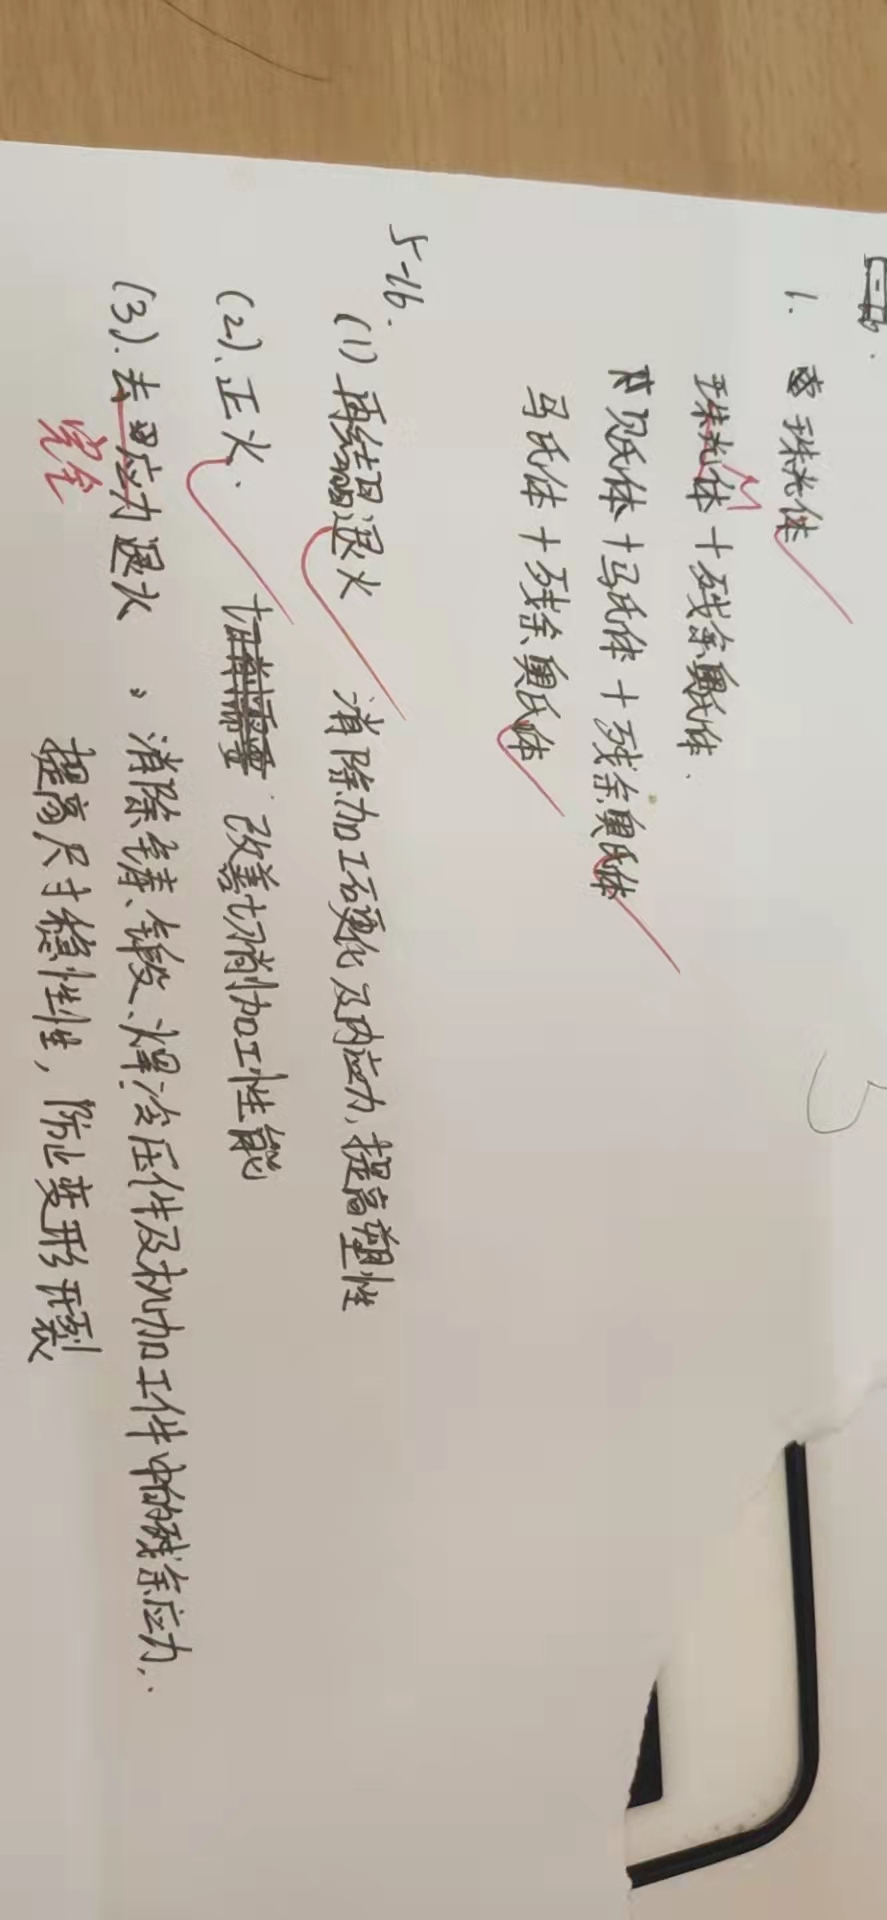 1. 珠光体
珠光体+残余奥氏体.
M
贝氏体+马氏体+残余奥氏体
马氏体+残余奥氏体
5-16.
(1) 再结晶退火 消除加工硬化及内应力,提高塑性
(2). 正火. 切削需要 改善切削加工性能
(3). 去应力退火 。消除铸、锻、焊冷压件及机加工件中的残余应力,.
完全
提高尺寸稳性性,防止变形开裂